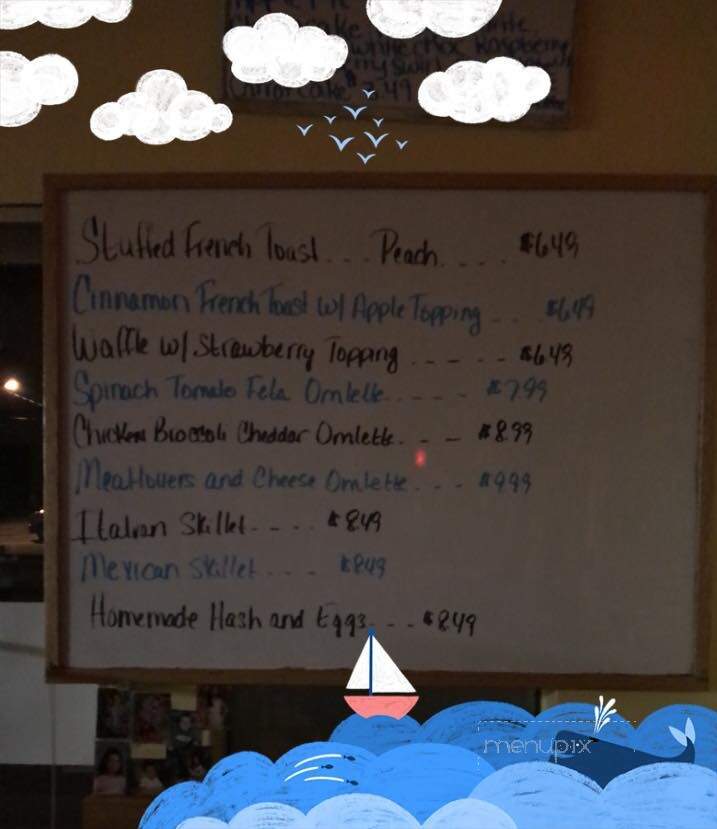 White Choc Raspberry
Carrot Cake 7.49
Stuffed French Toast... Peach.... $6.49
Cinnamon French Toast w/ Apple Topping... $6.49
Waffle w/ Strawberry Topping..... $6.49
Spinach Tomato Feta Omlette..... $7.99
Chicken Broccoli Cheddar Omlette... $8.99
Meatlovers and Cheese Omlette.... $9.99
Italian Skillet.... $8.49
Mexican Skillet.... $8.49
Homemade Hash and Eggs.... $8.49
menupix